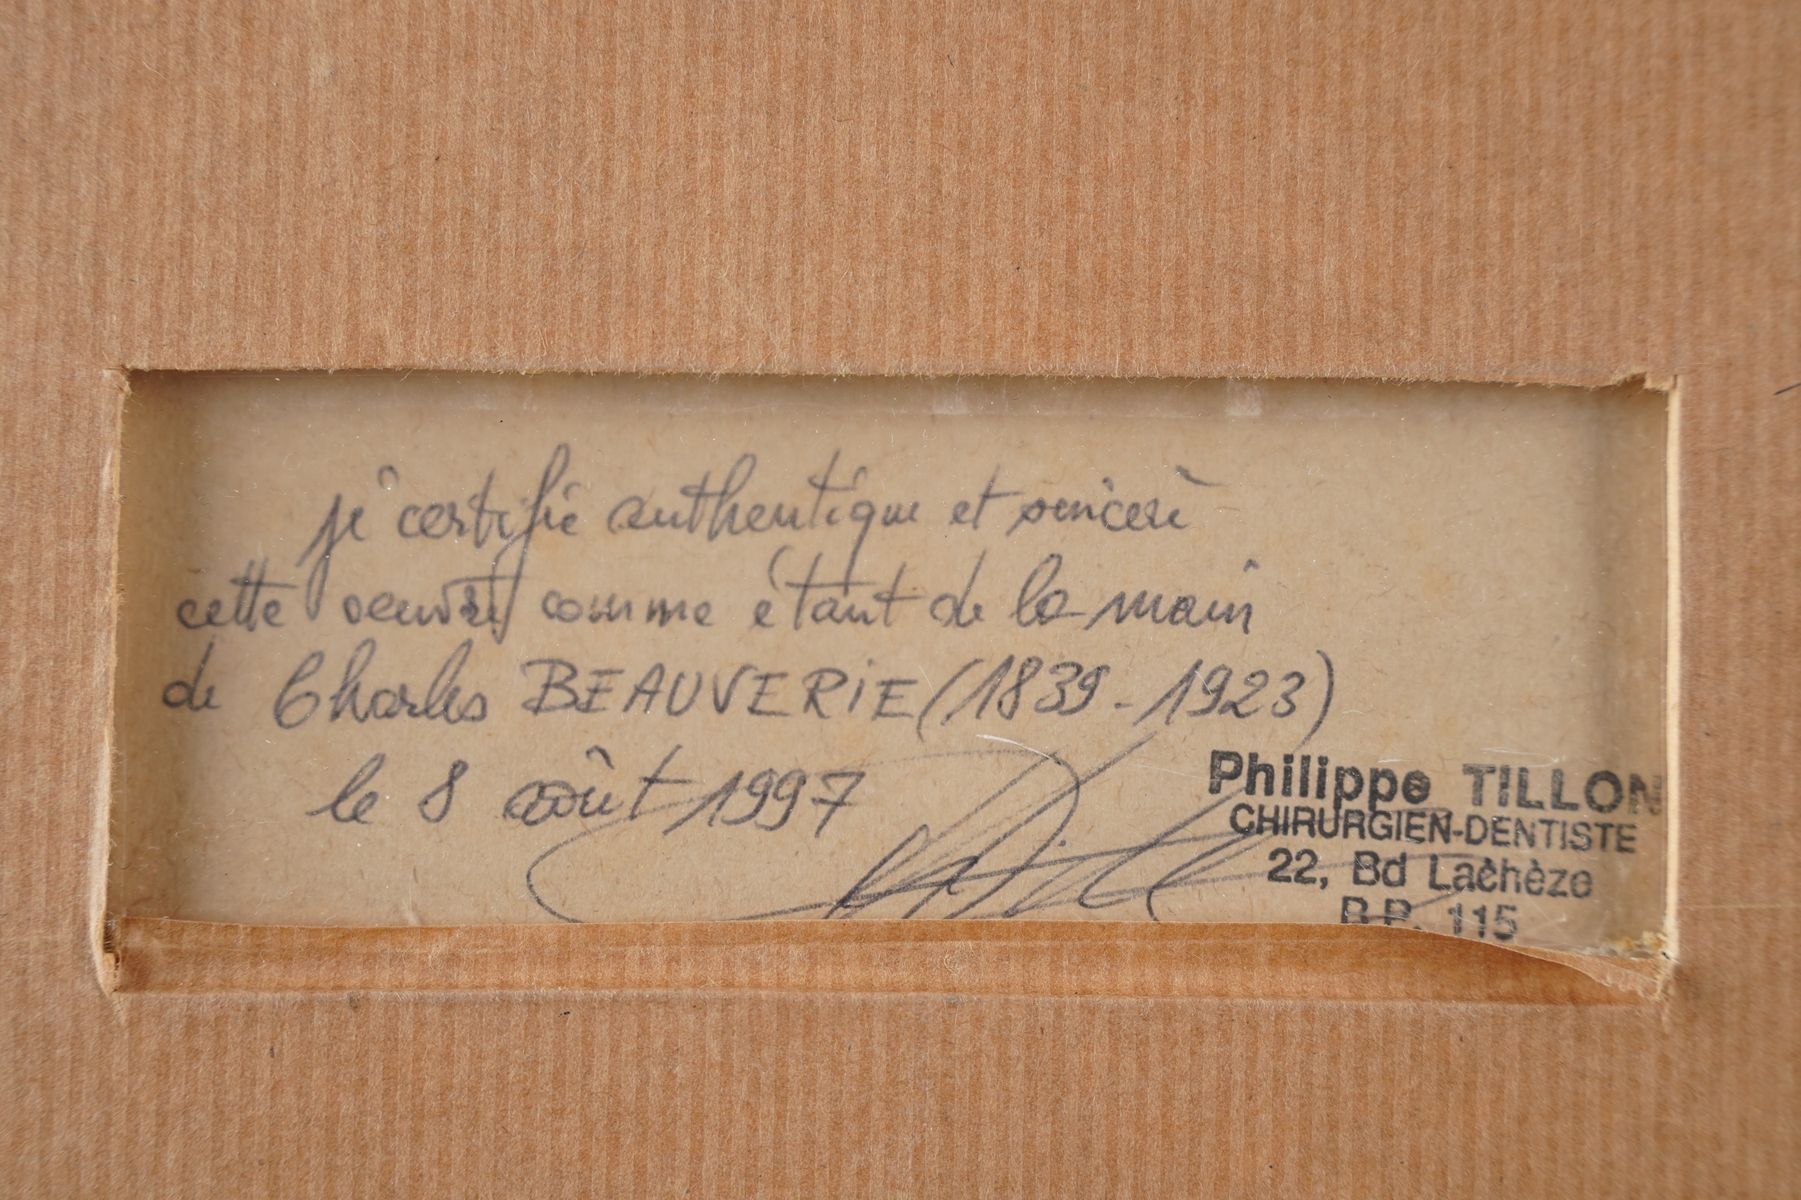 je certifie authentique et sincère
cette oeuvre comme étant de la main
de Charles BEAUVERIE (1839-1923)
le 8 août 1997
Philippe TILLON
CHIRURGIEN-DENTISTE
22, Bd Lachèze
B.P. 115